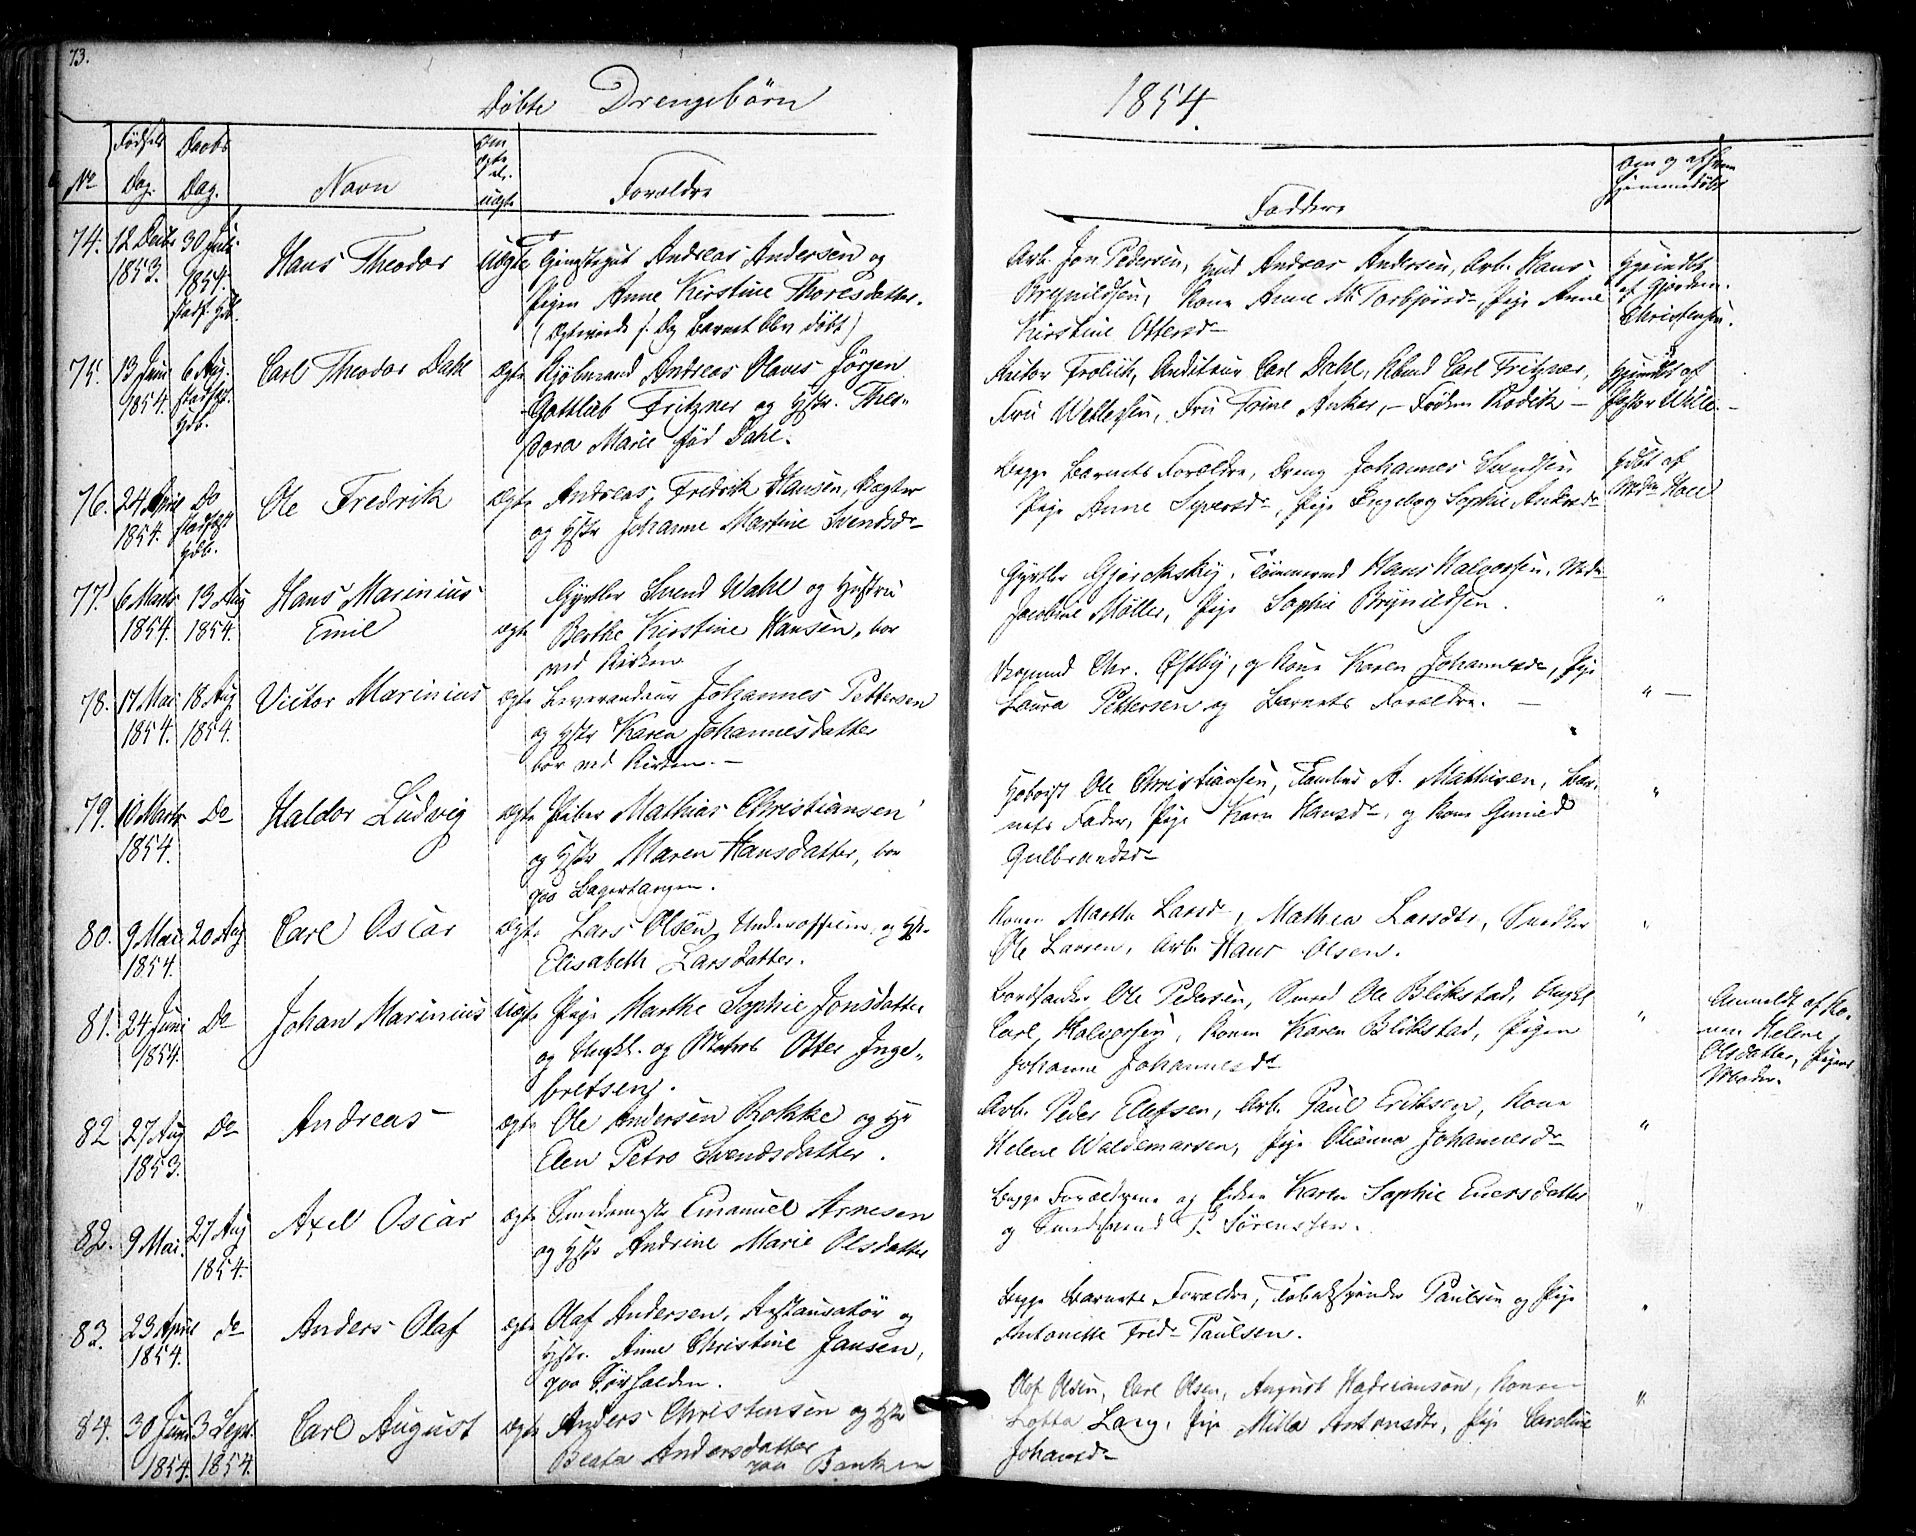 73.
Døbte Drengebørn
1854.
No
Fødsels Dag.
Daabs Dag.
Navn
Om ægte el. uægte
Forældre
Faddere
Om og af hvem hjemmedøbt
74. 12 Decbr 1853. 30 Juli 1854. stadf. hdb.
Hans Theodor
uægte
Andreas Andersen og
Pigen Anne Kirstine Thoresdatter.
Arb. Jon Pedersen, Andreas Andersen, Arb. Hans
Brynildsen, Kone Anne M. Torbjørsdr, Pige Anne
Kirstine Ottersdr
af Gjordem.
Christensen.
75. 13 Juni 1854. 6 Aug. stadfst. hdb.
Carl Theodor Dahl
ægte
Kjøbmand Andreas Olaves Jørgen
Gottlab Fritzner og Hstr. Theo-
dora Marie fød Dahl.
Anton Frølich, Auditeur Carl Dahl, Carl Fritzner,
Fru Wettesen, Fru Trine Anker, – Frøken Rodik –
af
Pastor Wille. –
76. 24 April 1854. Do stadfæst hdb.
Ole Fredrik
ægte
Andreas Fredrik Hansen, Vægter
og Hstr Johanne Martine Svendsdr
Begge Barnets Forældre, Dreng Johannes Svendsen
Pige Anne Syversdr, Pige Ingeborg Sophie Andersdr
hdbt af
Mdm Holl
77. 6 Marts 1854. 19 Aug 1854.
Hans Marinius
Emil
ægte
Gjørtler Svend Wahl og Hustru
Berthe Kirstine Hansen, bor
ved Kirken
Gjørtler, Tømmermd Hans Halvorsen, Mdm
Jacobine Møller, Pige Sophie Brynildsen.
"
78. 17 Mai 1854. 18 Aug 1854.
Victor Marinius
ægte
Leverandeur Johannes Pettersen
og Hstr Karen Johannesdatter
bor ved Kirken. –
Chr. Østby, og Kone Karen Johannesdr, Pige
Laura Pettersen og Barnets Forældre. –
" –
79. 10 Marts 1854. Do
Haldor Ludvig
ægte
Mathias Christiansen
og Hstr Maren Hansdatter, bor
paa Lagertangen.
Ole Christiansen, A. Mathisen, Bar-
nets Fader, Pige Karn Hansdr, og Kone Gunild
Gulbrandsdr
"
80. 9 Mai 1854. 20 Aug
Carl Oscar
ægte
Lars Olsen, Underofficier, og Hstr.
Elisabeth Larsdatter.
Konen Marthe Larsdr, Mathea Larsdtr, Snedker
Ole Larsen, Arb. Hans Olsen.
"
81. 24 Juni 1854. Do
Johan Marinius
uægte
Pige Marthe Sophie Jonsdatter
og Ungkl. og Matros Otter Inge-
bretsen.
Ole Pedersen, Smed Ole Blikstad, Ungkl
Carl Halvorsen, Konen Karen Blikstad, Pigen
Johanne Johannesdr
"
Anmeldt af Ko-
nen Helene
Olsdatter, Pigens
Moder.
82 27 Aug 1853. Do
Andreas
ægte
Ole Andersen Bokke og Hr
Elen Petra Svendsdatter.
Arb. Peder Ellefsen, Arb. Paul Eriksen, Kone
Helene Waldemarsen, Pige Olianna Johannesdr
"
82. 9 Mai. 27 Aug 1854.
Axel Oscar
ægte
Smedemstr Emanuel Arnesen
og Hstr Andrine Marie Olsdatter
Begge Forældrene og Enken Karen Sophie Enersdatter
og Smedsvend P. Sørenssen.
"
83. 23 April 1854. do
Anders Olaf
ægte
Olaf Andersen, Restauratør og
Hstr. Anne Christine Jansen,
paa Sørhalden.
Begge Barnets Forældre, Tobakspinder Paulsen og Pige
Antonette Fredr Paulsen.
"
84. 30 Juni 1854. 3 Sept. 1854.
Carl August
ægte
Anders Christensen og Hstr
Beata Andersdatter
paa Banken
Olof Olsen, Carl Olsen, August Hadriansøn, Konen
Lotta Lang, Pige Milla Antonsdtr, Pige Caroline
Johansdr
"